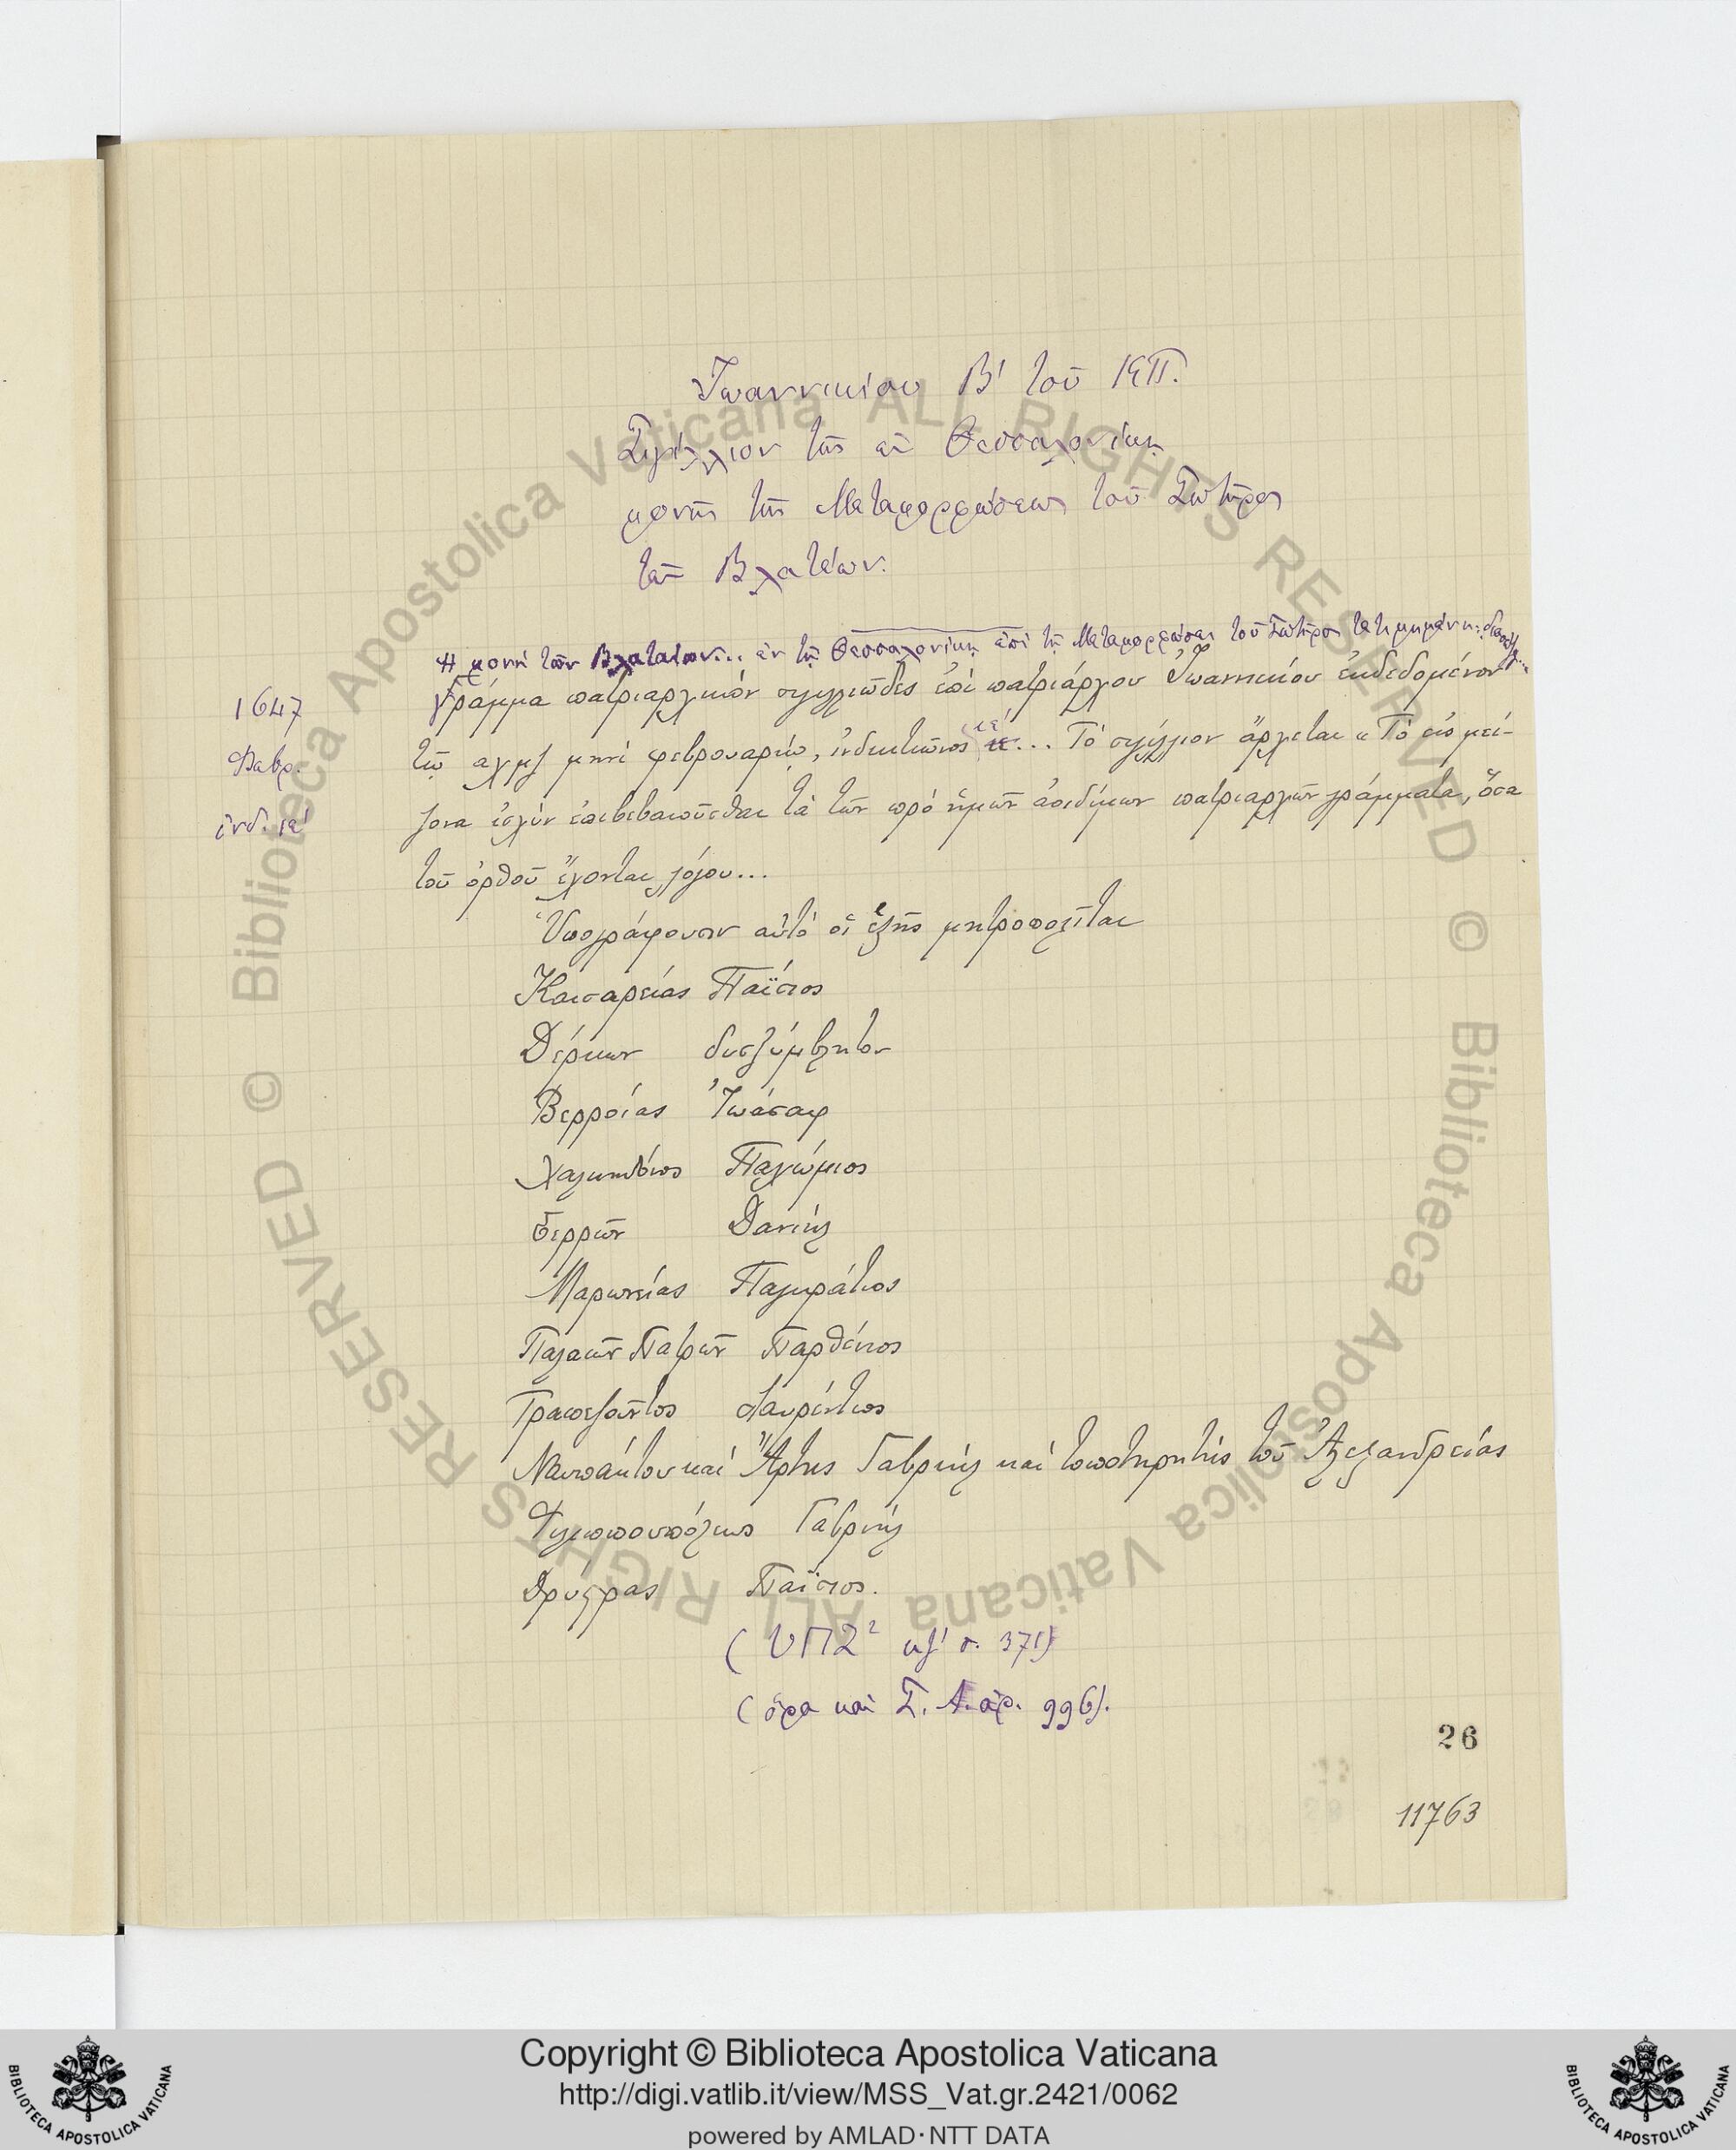 Ἰωαννικίου Β' τοῦ ΚΠ.
Σιγίλλιον τῆς ἐν Θεσσαλονίκῃ
μονῆς τῆς Μεταμορφώσεως τοῦ Σωτῆρος
τῶν Βλατέων.
Ἡ μονὴ τῶν Βλαταίων... ἐν τῇ Θεσσαλονίκῃ ἐπὶ τῇ Μεταμορφώσει τοῦ Σωτῆρος τετιμημένη
1647
Φεβρ.
ἰνδ. ιε'
Γράμμα πατριαρχικὸν σιγιλλιῶδες ἐπὶ πατριάρχου Ἰωαννικίου ἐκδεδομένον
τῷ αχμζ μηνὶ φεβρουαρίῳ, ἰνδικτιῶνος ιε'... Τὸ σιγίλλιον ἄρχεται « Τὸ εἰς μεί-
ζονα ἰσχὺν ἐπιβεβαιοῦσθαι τὰ τῶν πρὸ ἡμῶν ἀοιδίμων πατριαρχῶν γράμματα, ὅσα
τοῦ ὀρθοῦ ἔχονται λόγου...
Ὑπογράφουσιν αὐτὸ οἱ ἑξῆς μητροπολῖται
Καισαρείας Παΐσιος
Δέρκων δυσξύμβλητον
Βερροίας Ἰωάσαφ
Χαλκηδόνος Παχώμιος
Σερρῶν Δανιήλ
Μαρωνείας Παγκράτιος
Παλαιῶν Πατρῶν Παρθένιος
Τραπεζοῦντος Λαυρέντιος
Ναυπάκτου καὶ Ἄρτης Γαβριήλ καὶ τοποτηρητὴς τοῦ Ἀλεξανδρείας
Φιλιππουπόλεως Γαβριήλ
Δρύστρας Παΐσιος.
κζ' σ. 371)
(ὅρα καὶ Σ. Λ. ἀρ. 996).
26
11763
© Biblioteca Apostolica Vaticana ALL RIGHTS RESERVED © Biblioteca Apostolica Vaticana ALL RIGHTS RESERVED
Copyright © Biblioteca Apostolica Vaticana
http://digi.vatlib.it/view/MSS_Vat.gr.2421/0062
powered by AMLAD·NTT DATA
BIBLIOTECA APOSTOLICA VATICANA
BIBLIOTECA APOSTOLICA VATICANA